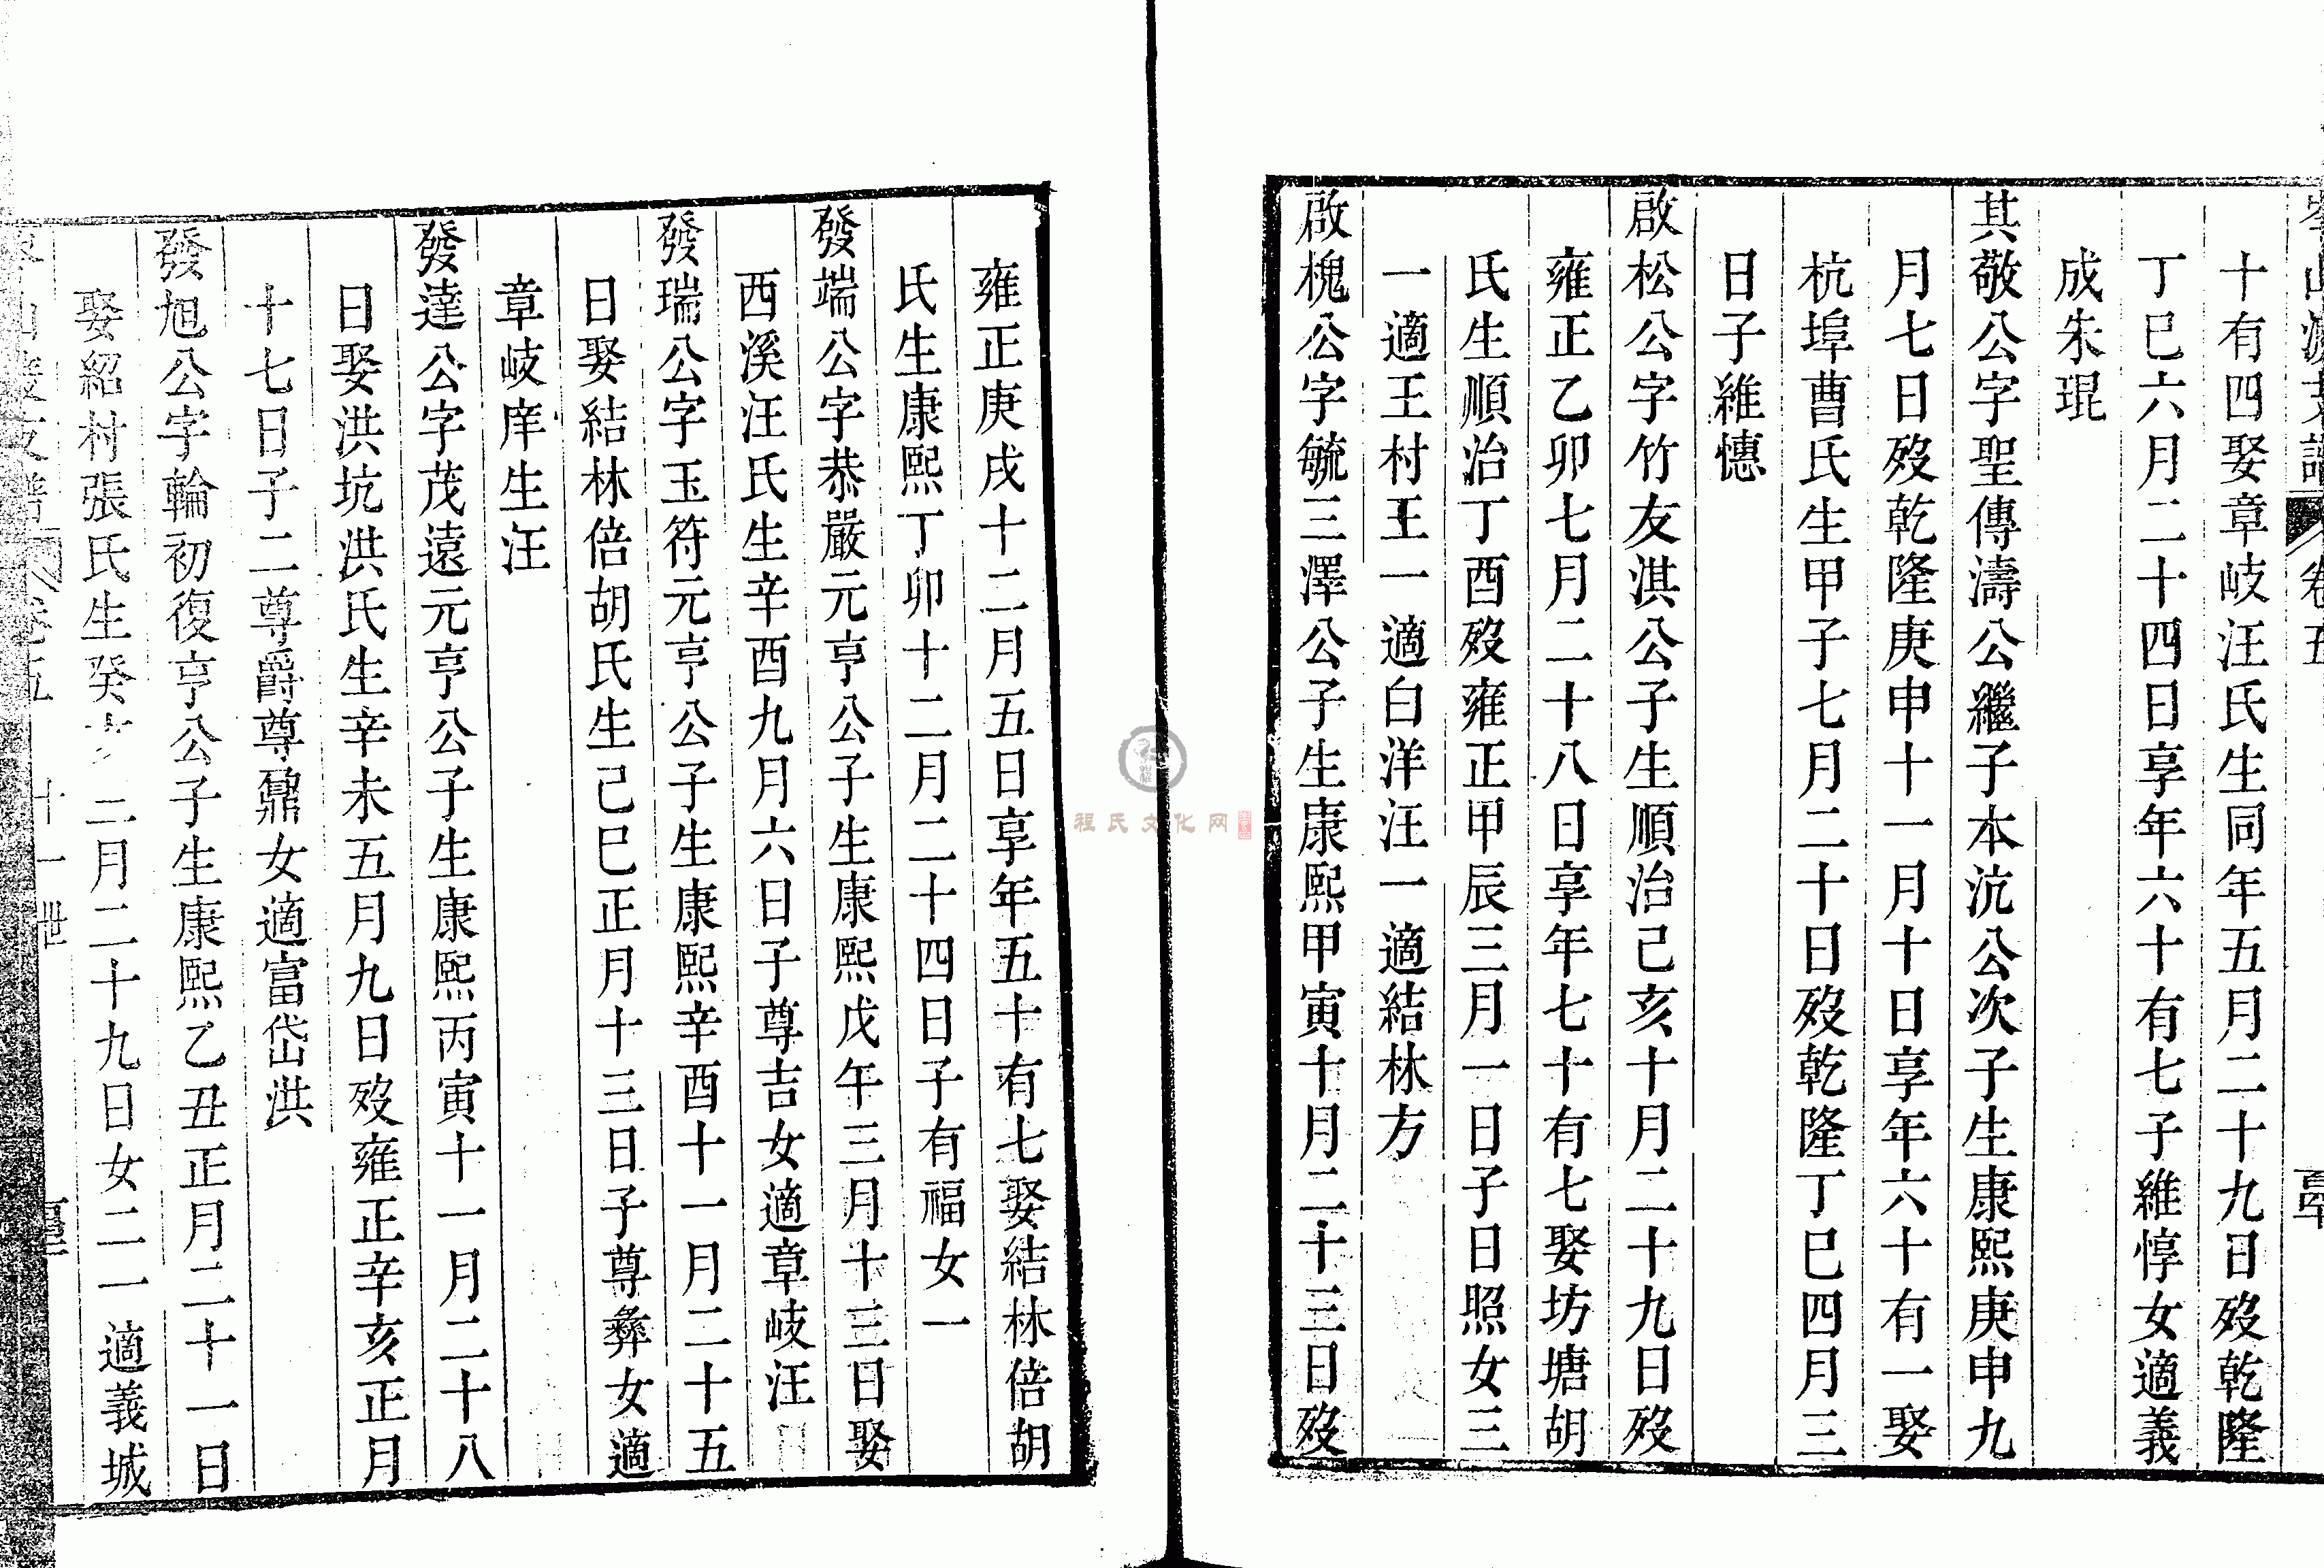 卷五
十有四娶章岐汪氏生同年五月二十九日歿乾隆
丁巳六月二十四日享年六十有七子維惇女適義
成朱琨
其敬公字聖傳濤公繼子本沆公次子生康熙庚申九
月七日歿乾隆庚申十一月十日享年六十有一娶
杭埠曹氏生甲子七月二十日歿乾隆丁巳四月三
日子維憓
啟松公字竹友淇公子生順治己亥十月二十九日歿
雍正乙卯七月二十八日享年七十有七娶坊塘胡
氏生順治丁酉歿雍正甲辰三月一日子日照女三
一適王村王一適白洋汪一適結林方
啟槐公字毓三澤公子生康熙甲寅十月二十三日歿
雍正庚戌十二月五日享年五十有七娶結林倍胡
氏生康熙丁卯十二月二十四日子有福女一
發端公字恭嚴元亨公子生康熙戊午三月十三日娶
西溪汪氏生辛酉九月六日子尊吉女適章岐汪
發瑞公字玉符元亨公子生康熙辛酉十一月二十五
日娶結林倍胡氏生己巳正月十三日子尊彝女適
章岐庠生汪
發達公字茂遠元亨公子生康熙丙寅十一月二十八
日娶洪坑洪氏生辛未五月九日歿雍正辛亥正月
十七日子二尊爵尊鼐女適富岱洪
發旭公字輪初復亨公子生康熙乙丑正月二十一日
娶紹村張氏生癸亥二月二十九日女二一適義城
支譜 卷五 十一世
程氏文化网